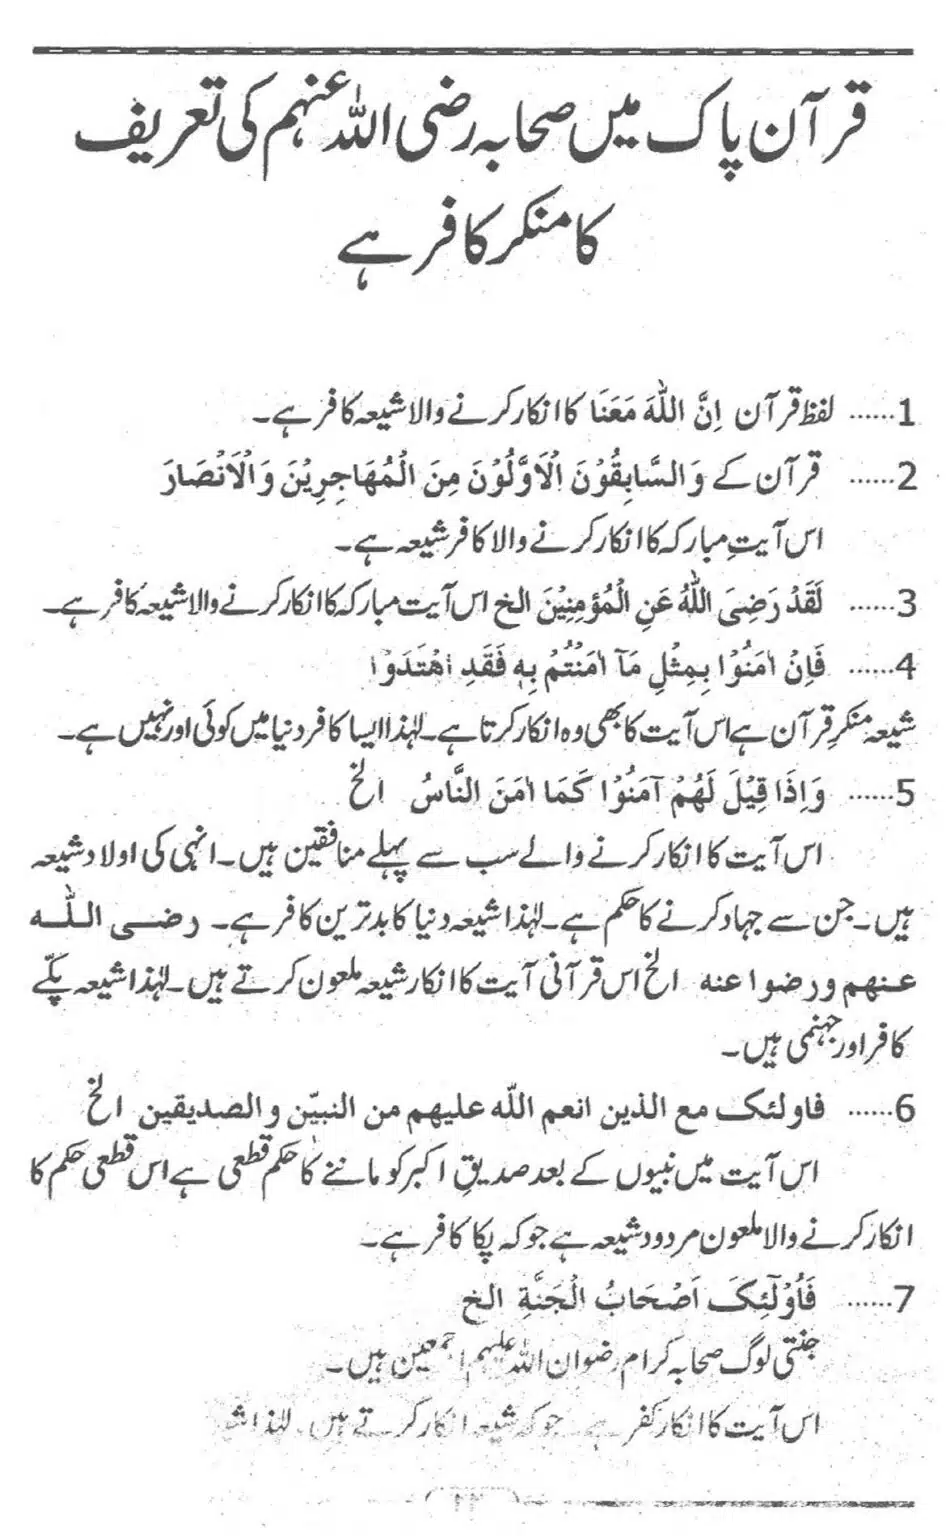 قرآن پاک میں صحابہ رضی اللہ عنہم کی تعریف
کا منکر کافر ہے
1...... لفظ قرآن اِنَّ اللّٰهَ مَعَنَا کا انکار کرنے والا شیعہ کافر ہے۔
2...... قرآن کے وَالسَّابِقُوْنَ الْاَوَّلُوْنَ مِنَ الْمُهَاجِرِيْنَ وَالْاَنْصَارَ
اس آیتِ مبارکہ کا انکار کرنے والا کافر شیعہ ہے۔
3...... لَقَدْ رَضِىَ اللّٰهُ عَنِ الْمُؤمِنِيْنَ الخ اس آیت مبارکہ کا انکار کرنے والا شیعہ کافر ہے۔
4...... فَاِنْ اٰمَنُوْا بِمِثْلِ مَآ اٰمَنْتُمْ بِهٖ فَقَدِ اهْتَدَوْا
شیعہ منکرِ قرآن ہے اس آیت کا بھی وہ انکار کرتا ہے۔ لہٰذا ایسا کافر دنیا میں کوئی اور نہیں ہے۔
5...... وَاِذَا قِيْلَ لَهُمْ آمَنُوْا كَمَا اٰمَنَ النَّاسُ الخ
اس آیت کا انکار کرنے والے سب سے پہلے منافقین ہیں۔ انہی کی اولاد شیعہ
ہیں۔ جن سے جہاد کرنے کا حکم ہے۔ لہٰذا شیعہ دنیا کا بدترین کافر ہے۔ رضی اللّٰه
عنهم ورضوا عنه الخ اس قرآنی آیت کا انکار شیعہ ملعون کرتے ہیں۔ لہٰذا شیعہ پکّے
کافر اور جہنمی ہیں۔
6...... فاولئک مع الذین انعم اللّٰه علیهم من النبیّن والصدیقین الخ
اس آیت میں نبیوں کے بعد صدیقِ اکبر کو ماننے کا حکم قطعی ہے اس قطعی حکم کا
انکار کرنے والا ملعون مردود شیعہ ہے جو کہ پکا کافر ہے۔
7...... فَاُوْلٰٓئِکَ اَصْحَابُ الْجَنَّةِ الخ
جنتی لوگ صحابہ کرام رضوان اللہ علیہم اجمعین ہیں۔
اس آیت کا انکار کفر ہے۔ جو کہ شیعہ انکار کرتے ہیں۔ لہٰذا